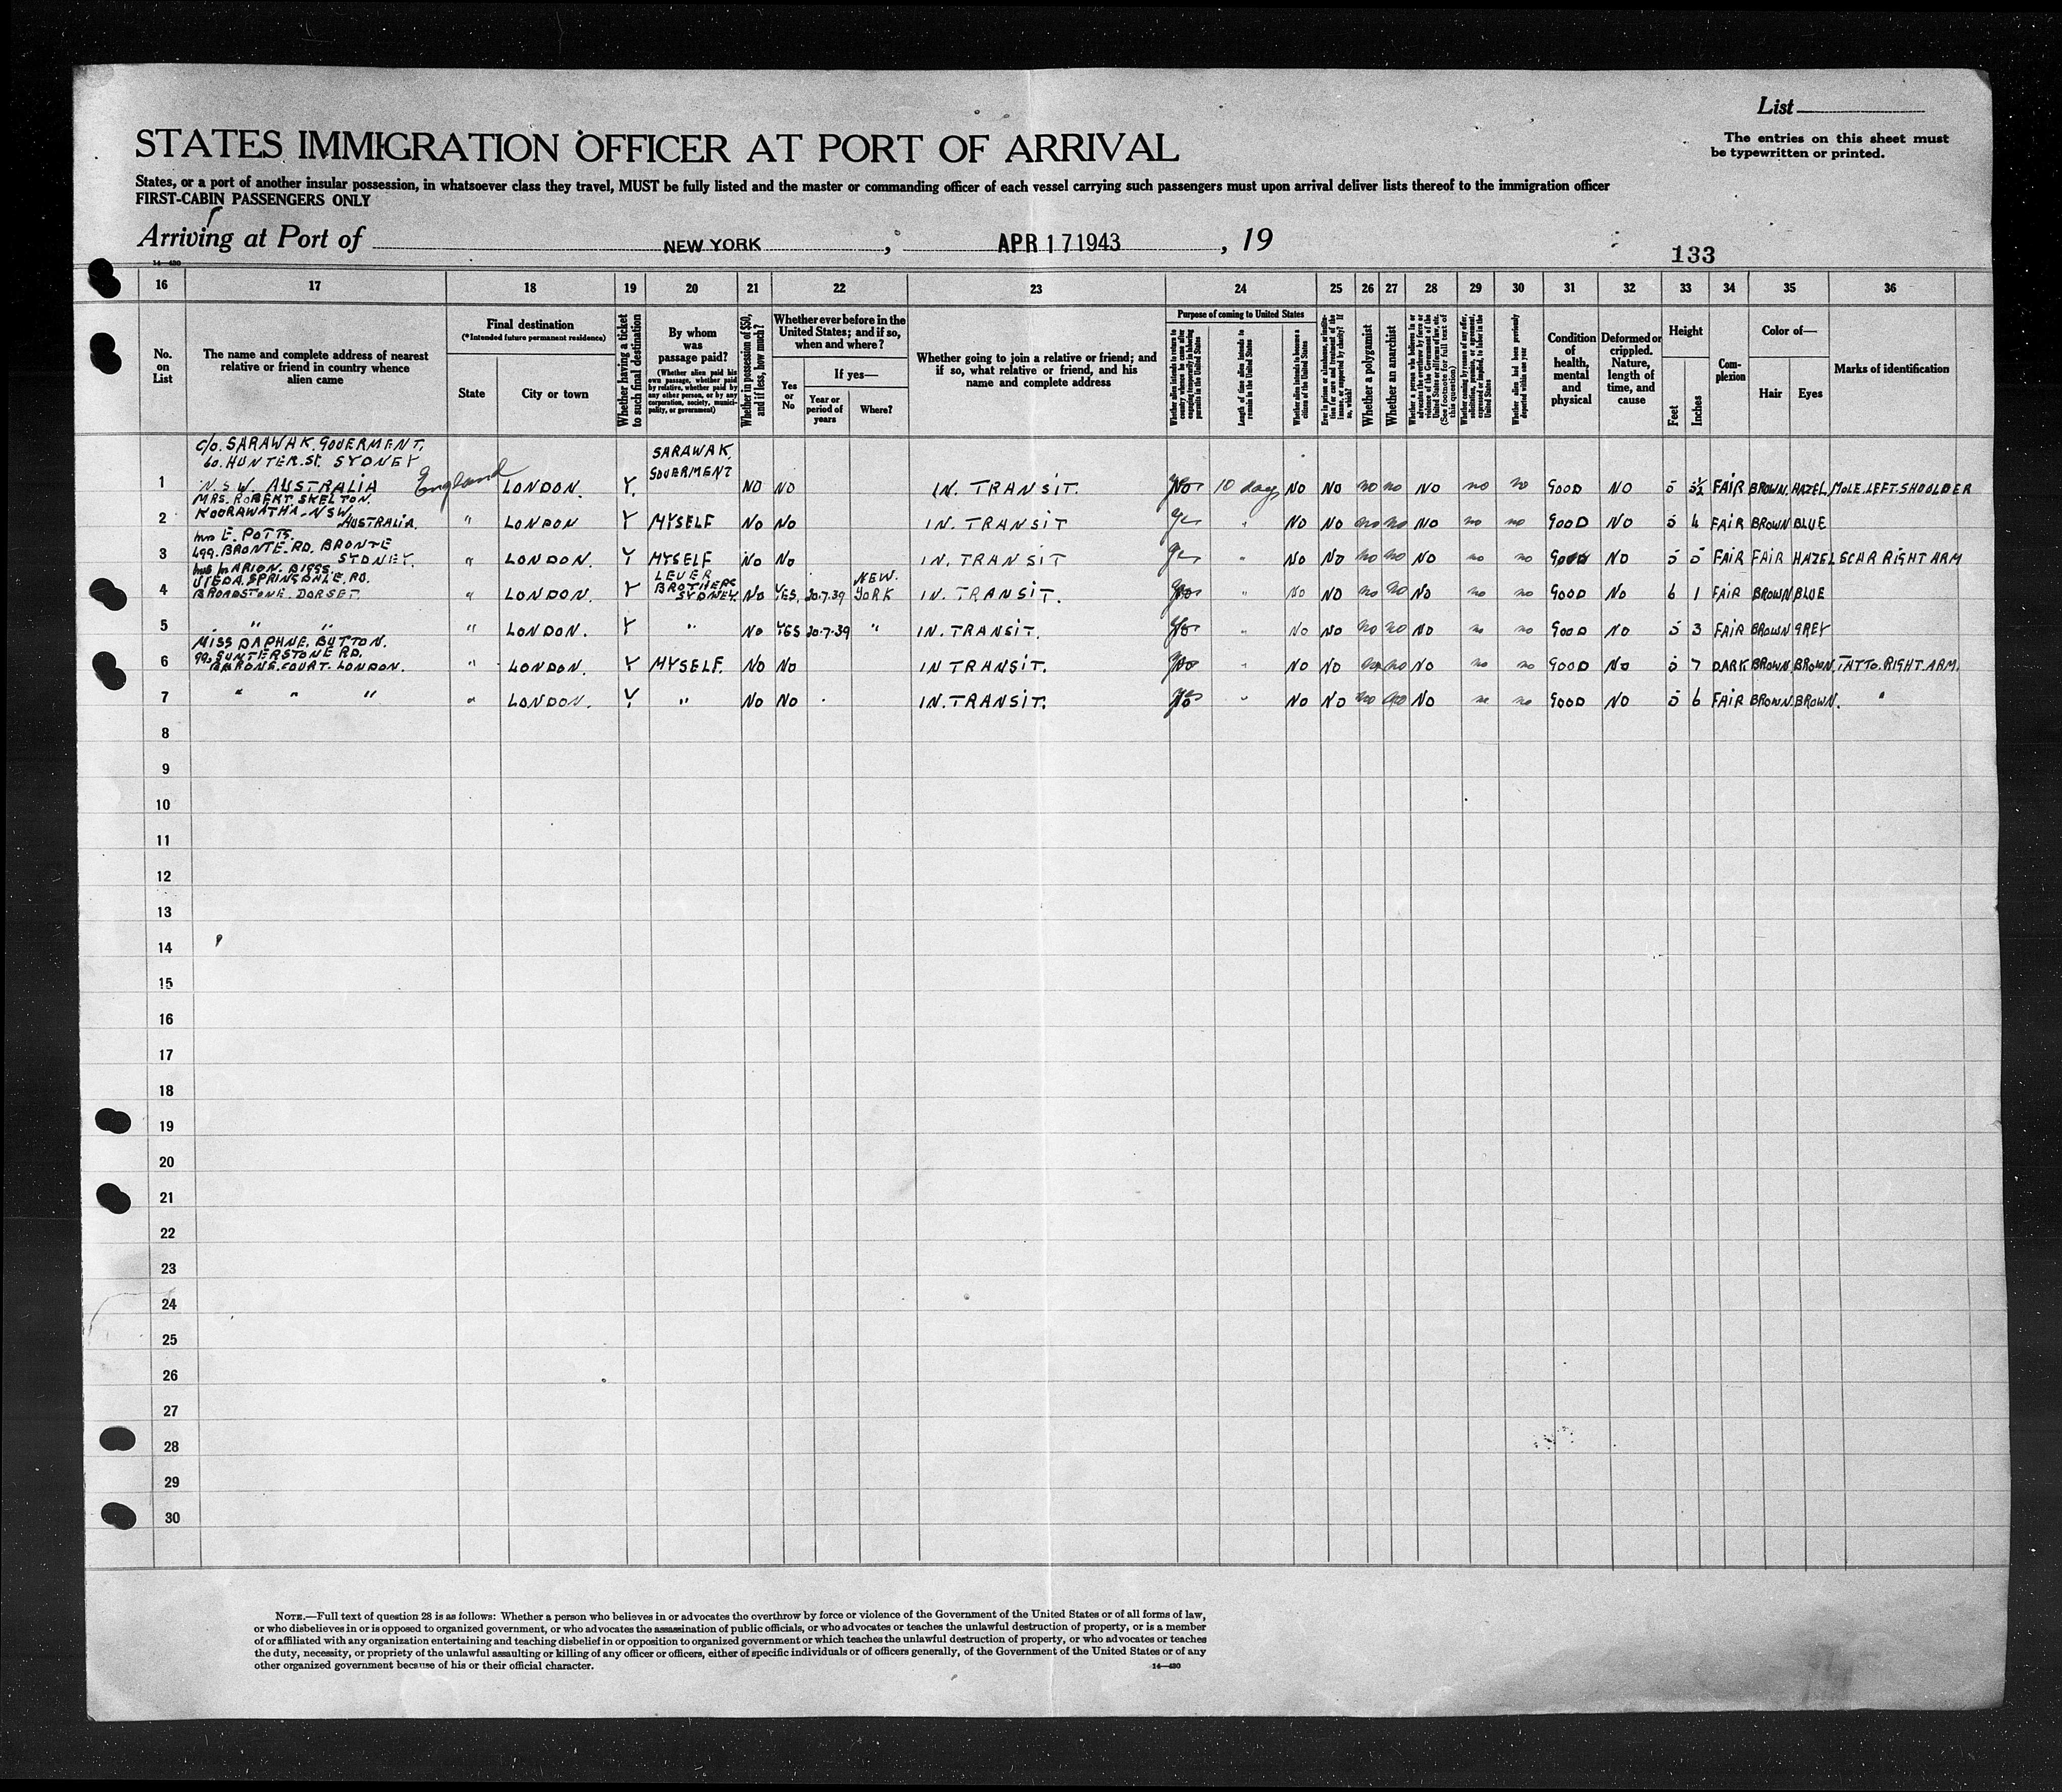 List
The entries on this sheet must
be typewritten or printed.
STATES IMMIGRATION OFFICER AT PORT OF ARRIVAL
States, or a port of another insular possession, in whatsoever class they travel, MUST be fully listed and the master or commanding officer of each vessel carrying such passengers must upon arrival deliver lists thereof to the immigration officer
FIRST-CABIN PASSENGERS ONLY
Arriving at Port of NEW YORK, APR 17 1943, 19
133
14—430
16 17 18 19 20 21 22 23 24 25 26 27 28 29 30 31 32 33 34 35 36
No. on List
The name and complete address of nearest
relative or friend in country whence
alien came
Final destination
(*Intended future permanent residence)
State
City or town
Whether having a ticket
to such final destination
By whom
was
passage paid?
(Whether alien paid his
own passage, whether paid
by relative, whether paid by
any other person, or by any
corporation, society, munici-
pality, or government)
Whether in possession of $50,
and if less, how much?
Whether ever before in the
United States; and if so,
when and where?
Yes
or
No
If yes—
Year or
period of
years
Where?
Whether going to join a relative or friend; and
if so, what relative or friend, and his
name and complete address
Purpose of coming to United States
Length of time alien intends to
remain in the United States
Whether alien intends to become a
citizen of the United States
Whether a polygamist
Whether an anarchist
Whether alien had been previously
deported within one year
Condition
of
health,
mental
and
physical
Deformed or
crippled.
Nature,
length of
time, and
cause
Height
Feet
Inches
Com-
plexion
Color of—
Hair
Eyes
Marks of identification
C/O. SARAWAK. GOVERMENT.
60. HUNTER. St. SYDNEY
N.S.W. AUSTRALIA
SARAWAK.
GOVERMENT
1 England LONDON. Y. NO NO IN. TRANSIT. 10 days NO NO no no NO no no GOOD NO 5 5½ FAIR BROWN. HAZEL. MOLE. LEFT. SHOOLDER
MRS. ROBERT. SKELTON.
KOORAWATHA. NSW.
AUSTRALIA.
2 " LONDON Y MYSELF NO NO IN. TRANSIT " NO NO no no NO no no GOOD NO 5 4 FAIR BROWN BLUE
Mrs E. POTTS.
499. BRONTE. RD. BRONTE
SYDNEY.
3 " LONDON. Y MYSELF NO NO IN. TRANSIT " NO NO no no NO no no GOOD NO 5 5 FAIR FAIR HAZEL SCAR RIGHT ARM
SPRINGDALE. RD.
BROADSTONE. DORSET.
LEVER
BROTHERS
SYDNEY.
4 " LONDON. Y NO YES. 20.7.39 NEW. YORK IN. TRANSIT. " NO NO no no NO no no GOOD NO 6 1 FAIR BROWN BLUE
5 " " " LONDON. Y " NO YES 20.7.39 " IN. TRANSIT. " NO NO no no NO no no GOOD NO 5 3 FAIR BROWN GREY
MISS DAPHNE. BUTTON.
99. GUNTERSTONE RD.
BARONS. COURT. LONDON.
6 " LONDON. Y MYSELF. NO NO IN TRANSIT. " NO NO no no NO no no GOOD NO 5 7 DARK BROWN. BROWN. TATTO. RIGHT. ARM.
7 " " " " LONDON. Y " NO NO IN. TRANSIT. " NO NO no no NO no no GOOD NO 5 6 FAIR BROWN. BROWN. "
8
9
10
11
12
13
14
15
16
17
18
19
20
21
22
23
24
25
26
27
28
29
30
NOTE.—Full text of question 28 is as follows: Whether a person who believes in or advocates the overthrow by force or violence of the Government of the United States or of all forms of law,
or who disbelieves in or is opposed to organized government, or who advocates the assassination of public officials, or who advocates or teaches the unlawful destruction of property, or is a member
of or affiliated with any organization entertaining and teaching disbelief in or opposition to organized government or which teaches the unlawful destruction of property, or who advocates or teaches
the duty, necessity, or propriety of the unlawful assaulting or killing of any officer or officers, either of specific individuals or of officers generally, of the Government of the United States or of any
other organized government because of his or their official character.
14—430